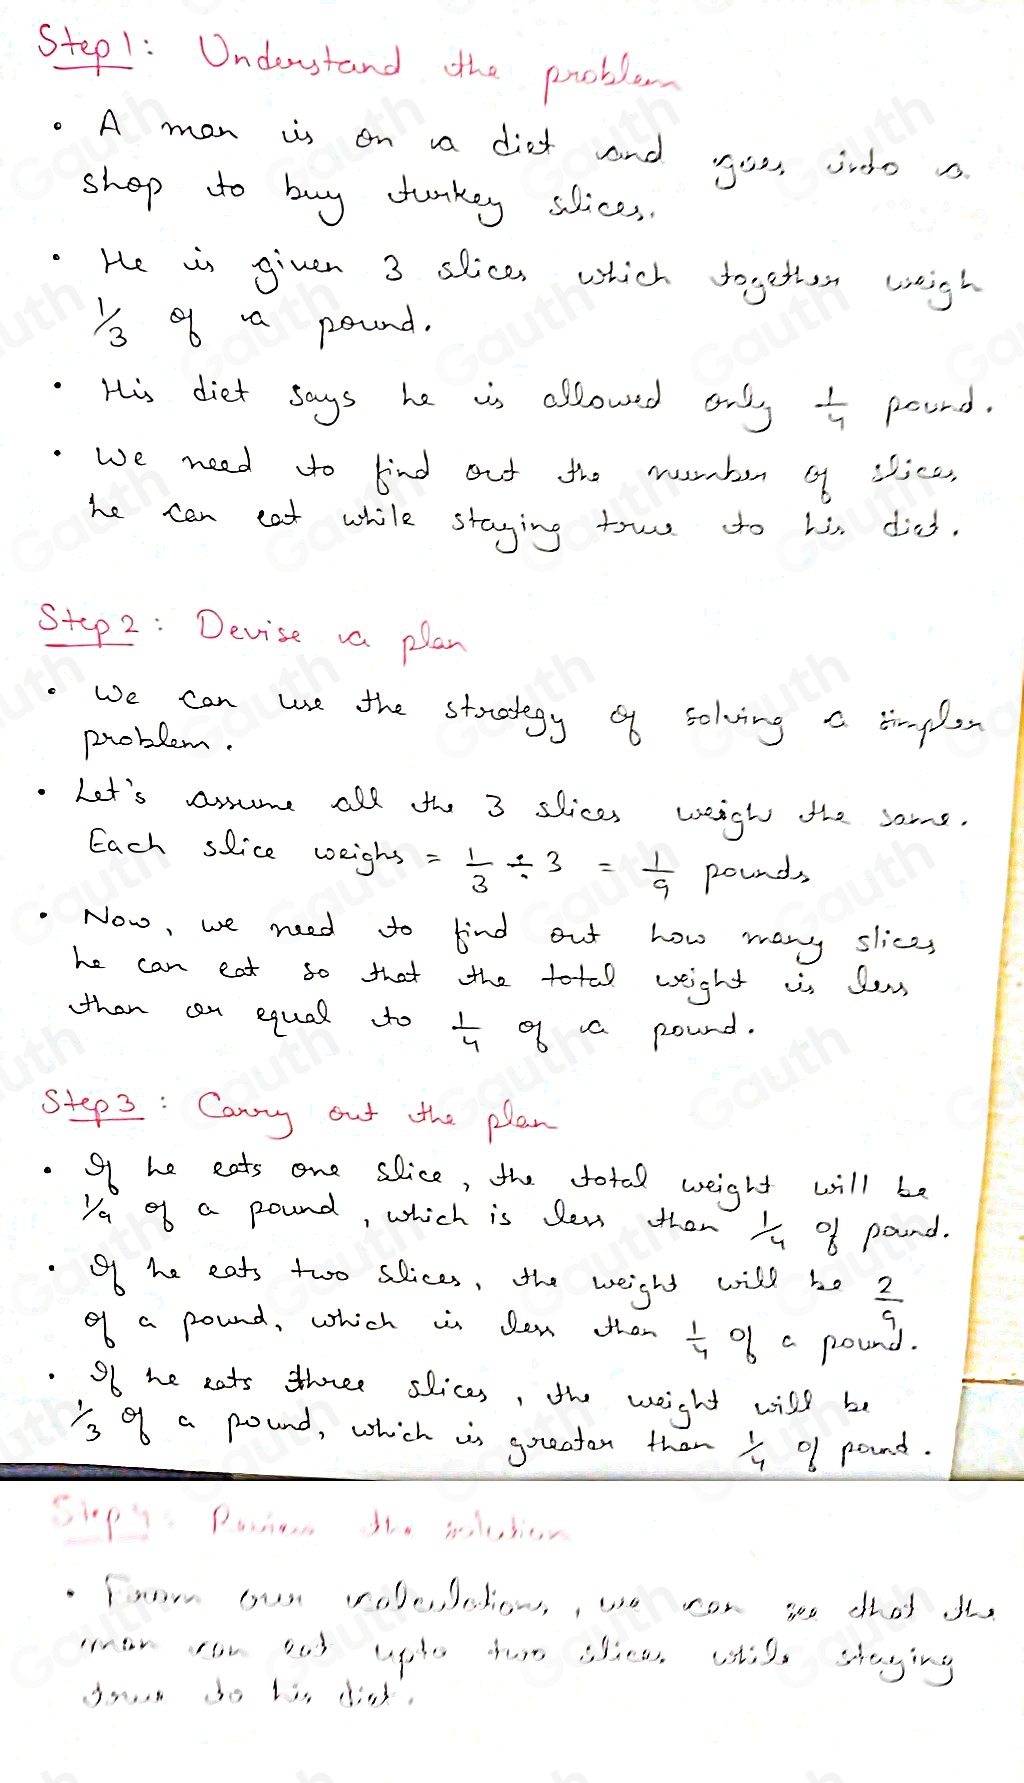 Step 1: Understand the problem
• A man is on a diet and goes into a
shop to buy turkey slices.
• He is given 3 slices which together weigh
1/3 of a pound.
• His diet says he is allowed only 1/4 pound.
• We need to find out the number of slices
he can eat while staying true to his diet.
Step 2: Devise a plan
• We can use the strategy of solving a simpler
problem.
• Let's assume all the 3 slices weigh the same.
Each slice weighs = 1/3 ÷ 3 = 1/9 pounds
• Now, we need to find out how many slices
he can eat so that the total weight is less
than or equal to 1/4 of a pound.
Step 3: Carry out the plan
• If he eats one slice, the total weight will be
1/9 of a pound, which is less than 1/4 of pound.
• If he eats two slices, the weight will be 2/9
of a pound, which is less than 1/4 of a pound.
• If he eats three slices, the weight will be
1/3 of a pound, which is greater than 1/4 of pound.
Step 4: Review the solution
• From our calculations, we can see that the
man can eat upto two slices while staying
true to his diet.